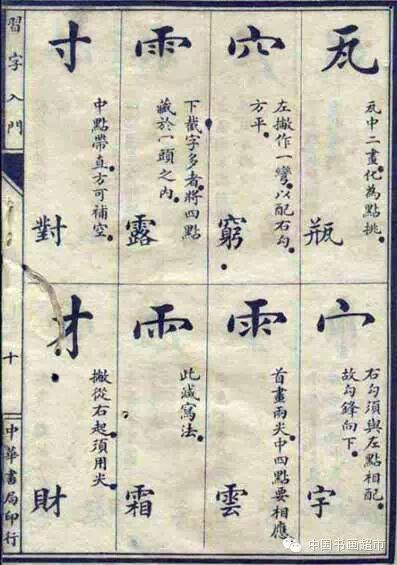 瓦
瓦中二畫化為點挑
瓶
穴
左撇作一彎以配右勾
方平
窮
雨
下截字多者將四點
藏於一頭之內
露
寸
中點帶直方可補空
對
宀
右勾須與左點相配
故勾鋒向下
字
雨
首畫兩尖中四點要相應
雲
雨
此減寫法
霜
才
撇從右起須用尖
財
習字入門
十
中華書局印行
中国书画超市